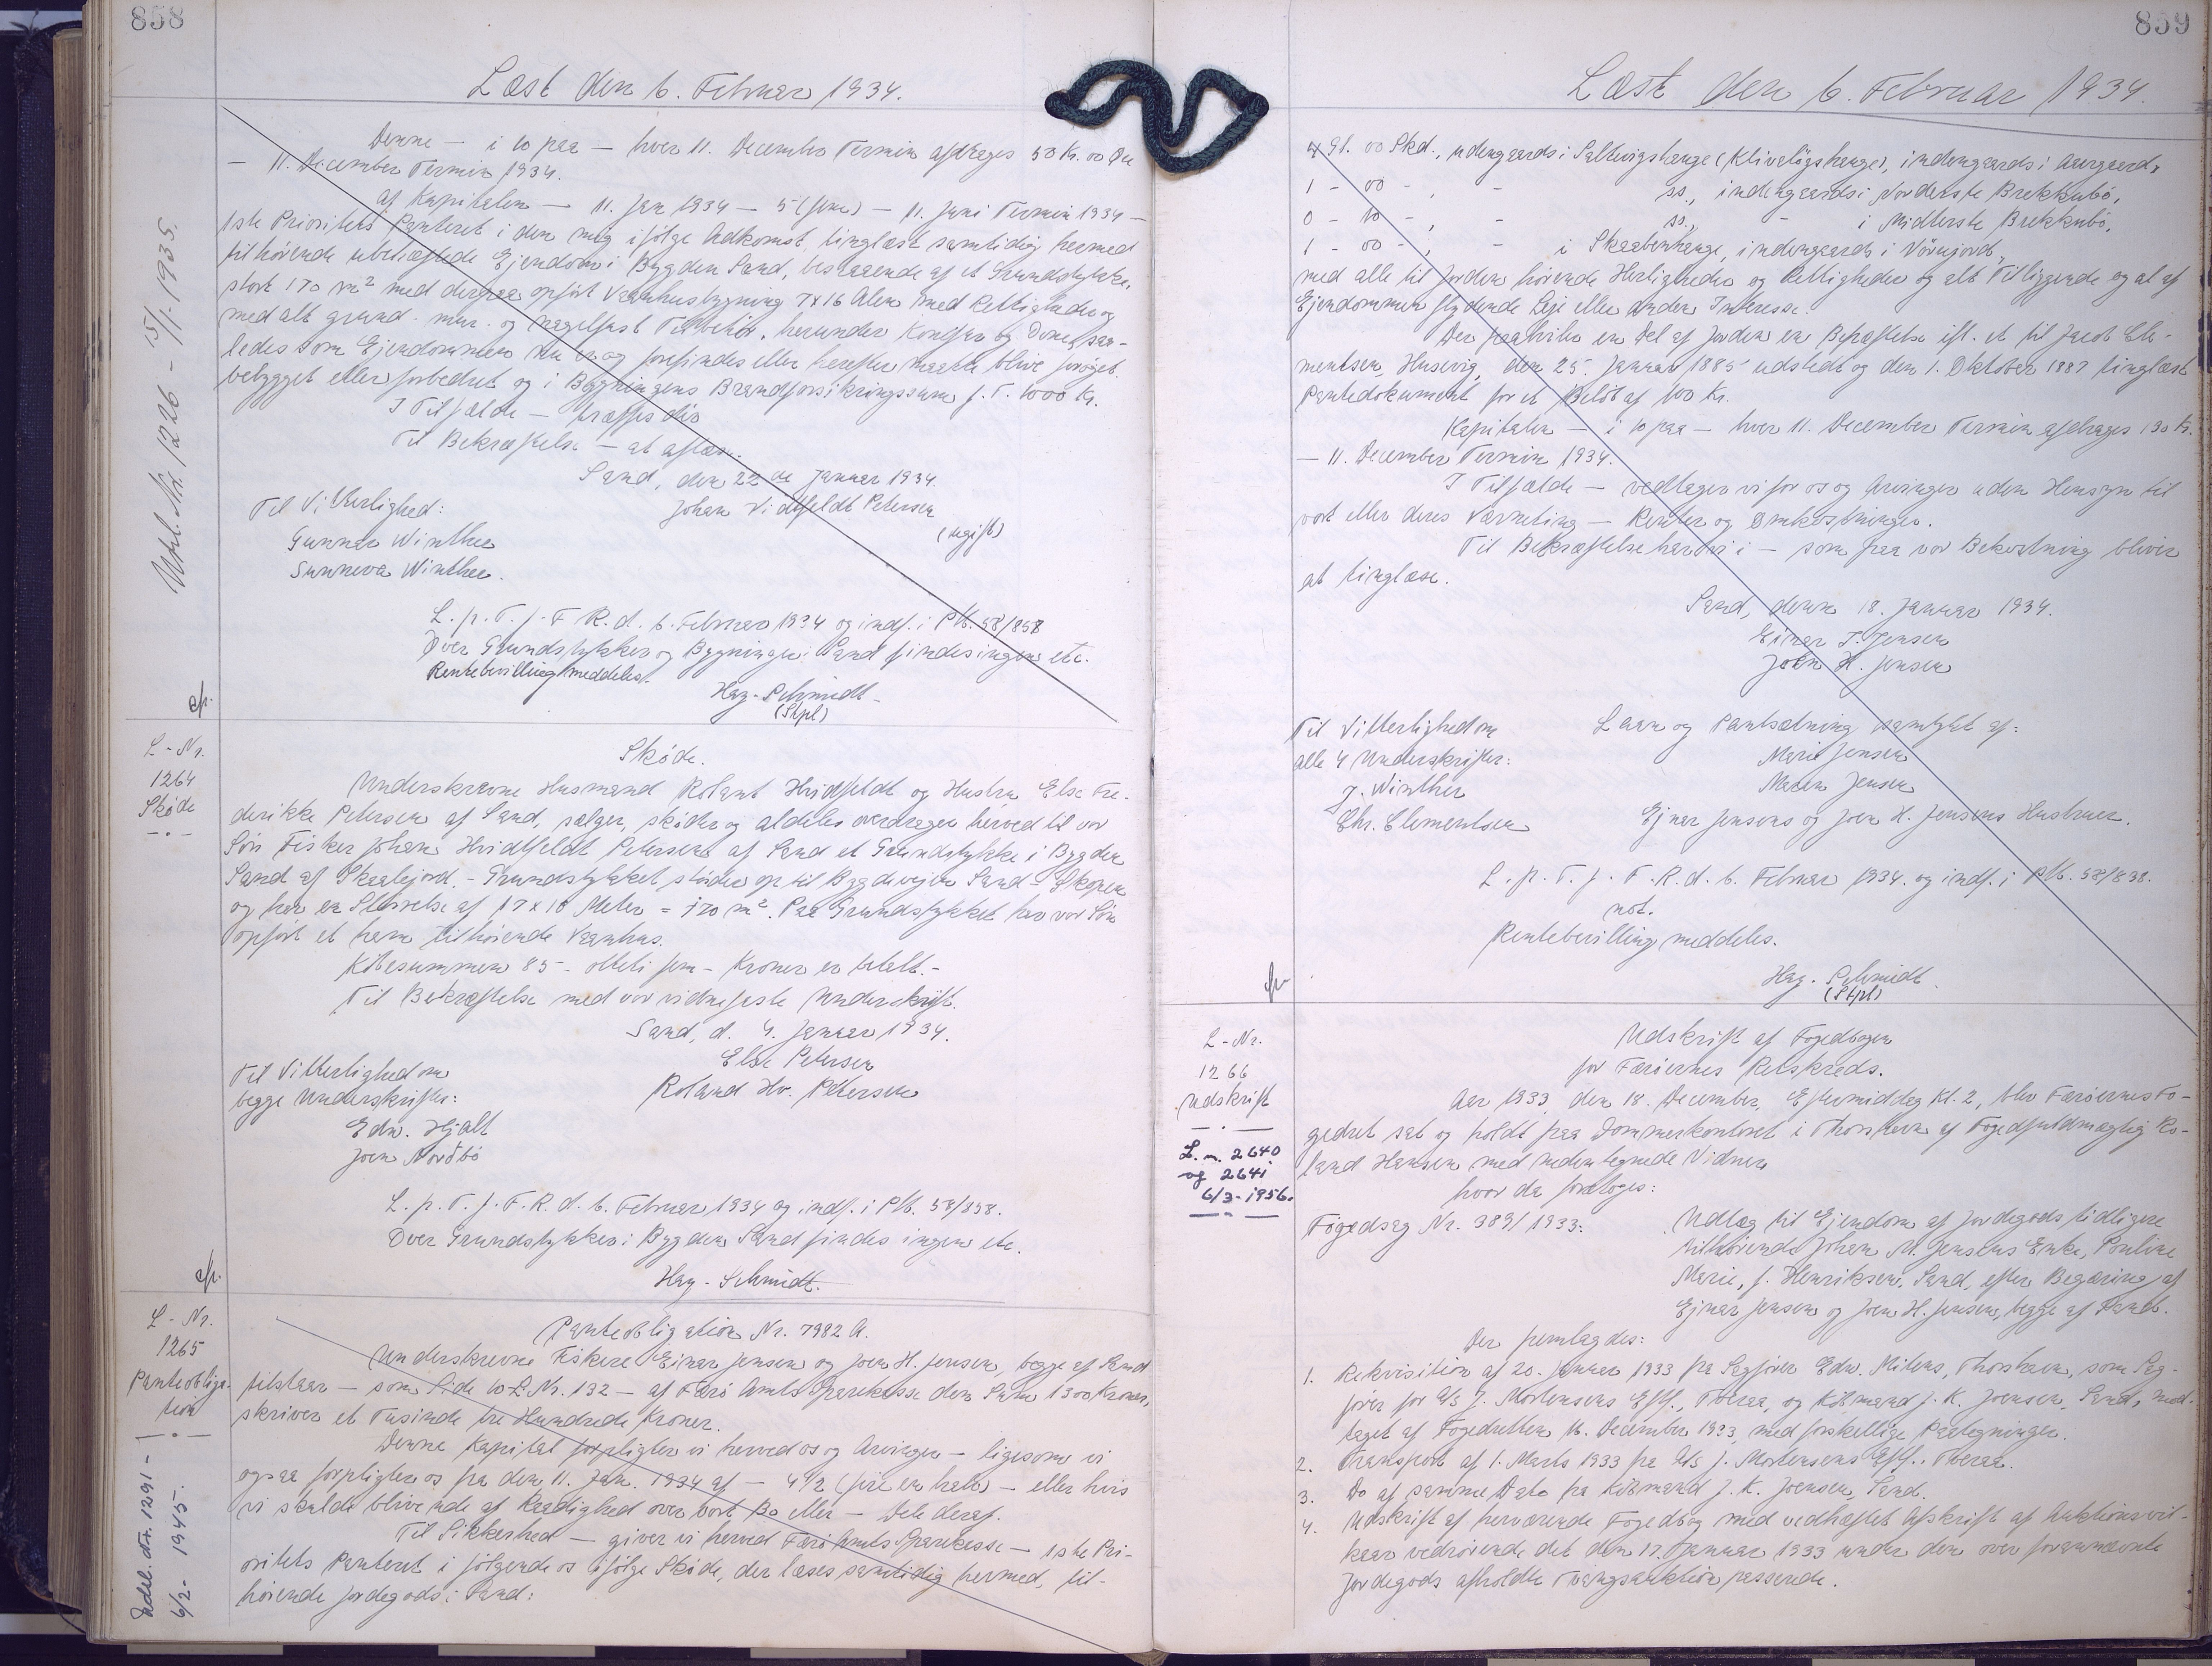 858
Læst den 6. Februar 1934.
Denne — i 10 paa — hver 11. December Termin afdrages 50 Kr. 00 Øre
— 11. December Termin 1934.
af Kapitalen — 11. Jan 1934 — 5 (fem) — 11. Juni Termin 1934 —
1ste Prioritets Panteret i den mig ifølge Adkomst, tinglæst samtidig hermed
tilhørende ubehæftede Ejendom i Bygden Sand, bestaaende af et Grundstykke,
stort 170 m² med derpaa opført Vaaningsbygning 7x16 Alen med Rettigheder og
med alt grund- mur- og nagelfast Tilbehør, herunder Komfur og Ovne, saa-
ledes som Ejendommen nu er og forefindes eller herefter maatte blive forøget
bebygget eller forbedret og i Bygningens Brandforsikringssum f. T. 4000 Kr.
I Tilfælde — træffes dér
Til Bekræftelse — at aflæse.
Sand, den 22de Januar 1934.
Til Vitterlighed:
Johan Vidtfeldt Petersen
(ugift)
Gunnar Winther
Sunneva Winther.
L. p. T. f. F R. d. 6. Februar 1934 og indf. i Ptb. 58/858
Over Grundstykker og Bygninger i Sand findes ingen etc.
Rentebevilling meddeles.
Hay-Schmidt
(Stpl)
Udsl. Nr. 1226 - 15/1. 1935.
cfr.
L-Nr.
1264
Skøde
Skøde.
Underskrevne Husmand Roland Hvidtfeldt og Hustru Else Fre-
derikke Petersen af Sand, sælger, skøder og aldeles overdrager herved til vor
Søn Fisker Johan Hvidtfeldt Petersen af Sand et Grundstykke i Bygden
Sand af Skaalejord. - Grundstykket støder op til Bygdevejen Sand - Skopen
og har en Størrelse af 17x10 Meter = 170 m². Paa Grundstykket har vor Søn
opført et ham tilhørende Vaanhus.
Købesummen 85 - otteti fem - Kroner er betalt. -
Til Bekræftelse med vor vidnefaste Underskrift.
Sand, d. 4. Januar 1934.
Til Vitterlighed om
begge Underskrifter:
Else Petersen
Roland Hv. Petersen
Edw. Hjalt
Joen Norðbø
L. p. T. f. F. R. d. 6. Februar 1934 og indf. i Ptb. 58/858.
Over Grundstykker i Bygden Sand findes ingen etc.
Hay-Schmidt.
cfr.
L-Nr.
1265
Panteobliga-
tion
Udsl. Nr. 1291 -
6/2- 1945.
Panteobligation Nr. 7982 A.
Underskrevne Fiskere Einar Jensen og Joen H. Jensen, begge af Sand
tilstaar — som Side 10 L. Nr. 132 — af Færø Amts Sparekasse den Sum 1300 Kroner,
skriver et Tusinde tre Hundrede Kroner.
Denne Kapital forpligter vi herved os og Arvinger — ligesom vi
ogsaa forpligter os fra den 11. Jan. 1934 af — 4½ (fire en halv) — eller hvis
vi skulde blive ude af Raadighed over vort Bo eller — Dele deraf.
Til Sikkerhed — giver vi herved Færø Amts Sparekasse — 1ste Pri-
oritets Panteret i følgende os ifølge Skøde, der læses samtidig hermed, til-
hørende Jordegods i Sand:
859
Læst den 6. Februar 1934.
4 Gl. 00 Skd., udengaards i Saltvigshauge (Klivaløgshauge), indengaards i Aargaard,
1 - 00 - , - ss., indengaards i Norderste Brekkubø,
0 - 10 - , - ss., - i Midterste Brekkubø,
1 - 00 - , - i Skaabenhauge, indengaards i Vørujord,
med alle til Jorden hørende Herligheder og Rettigheder og alt Tilliggende og al af
Ejendommen flydende Leje eller anden Interesse.
Der paahviler en Del af Jorden en Behæftelse ifl. et til Jacob Cle-
mentsen, Husevig, den 25. Januar 1885 udstedt og den 1. Oktober 1887 tinglæst
Pantedokument for et Beløb af 100 Kr.
Kapitalen — i 10 paa — hver 11. December Termin afdrages 130 Kr.
— 11. December Termin 1934.
I Tilfælde — vedtager vi for os og Arvinger uden Hensyn til
vort eller deres Værneting — Renter og Omkostninger.
Til Bekræftelse har vi i — som paa vor Bekostning bliver
at tinglæse.
Sand, denn 18. Januar 1934.
Einar J. Jensen
Joen H. Jensen
Til Vitterlighed om
alle 4 Underskrifter:
Laan og Pantsætning samtykt af:
Marie Jensen
Maren Jensen
J. Winther
Chr. Clementsen
Ejnar Jensens og Joen H. Jensens Hustruer.
L. p. T. f. F. R. d. 6. Februar 1934. og indf. i Ptb. 58/838.
not.
Rentebevilling meddeles.
Hay-Schmidt.
(Stpl)
cfr
L-Nr.
1266
Udskrift
L. n. 2640
og 2641
6/3-1956.
Udskrift af Fogedbogen
for Færøernes Retskreds.
Aar 1933 den 18. December, Eftermiddag Kl. 2, blev Færøernes Fo-
gedret sat og holdt paa Dommerkontoret i Thorshavn af Fogedfuldmægtig Ro-
land Hansen med nedentegnede Vidner
hvor da foretoges:
Fogedsag Nr. 389/1933:
Udlæg til Ejendom af Jordegods tidligere
tilhørende Johan M. Jensens Enke, Pouline
Marie, f. Henriksen, Sand, efter Begæring af
Ejnar Jensen og Joen H. Jensen, begge af Sand.
Der fremlagdes:
1. Rekvisition af 20. Januar 1933 fra Sagfører Edw. Mitens, Thorshavn, som Sag-
fører for A/S J. Mortensens Eftf., Tveraa, og Købmand J. K. Joensen, Sand, mod-
taget af Fogedretten 16. December 1933 med forskellige Paategninger.
2. Transport af 1. Marts 1933 fra A/S J. Mortensens Eftf., Tveraa.
3. Do af samme Dato fra Købmand J. K. Joensen, Sand.
4. Udskrift af herværende Fogedbog med vedhæftet Afskrift af Auktionsvil-
kaar vedrørende det den 17. Januar 1933 under den over forannævnte
Jordegods afholdte Tvangsauktion passerede.